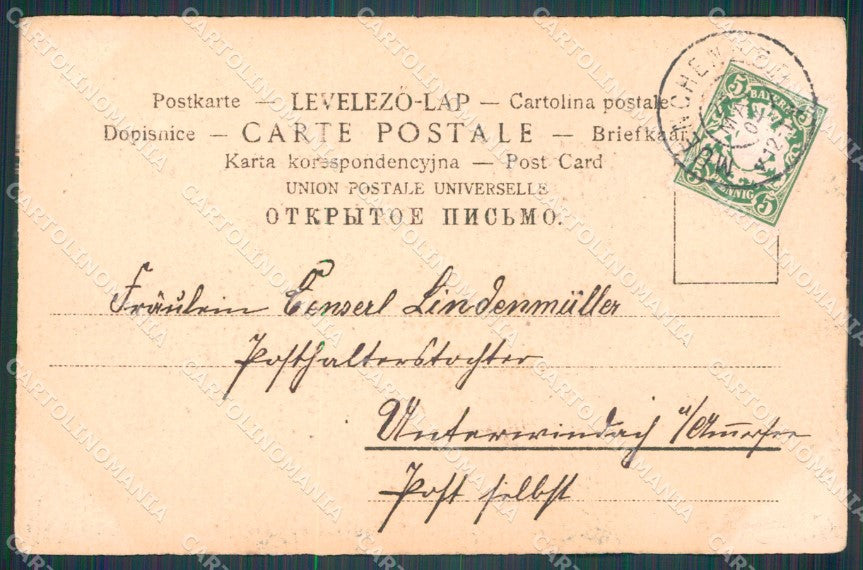 Postkarte — LEVELEZŐ-LAP — Cartolina postale
Dopisnice — CARTE POSTALE — Briefkaart
Karta korespondencyjna — Post Card
UNION POSTALE UNIVERSELLE
ОТКРЫТОЕ ПИСЬМО.
5 BAYERN
PFENNIG 5
MÜNCHEN
Fräulein Lindenmüller
Posthalterstochter
Unterwindach a/Ammersee
Post selbst
CARTOLINOMANIA